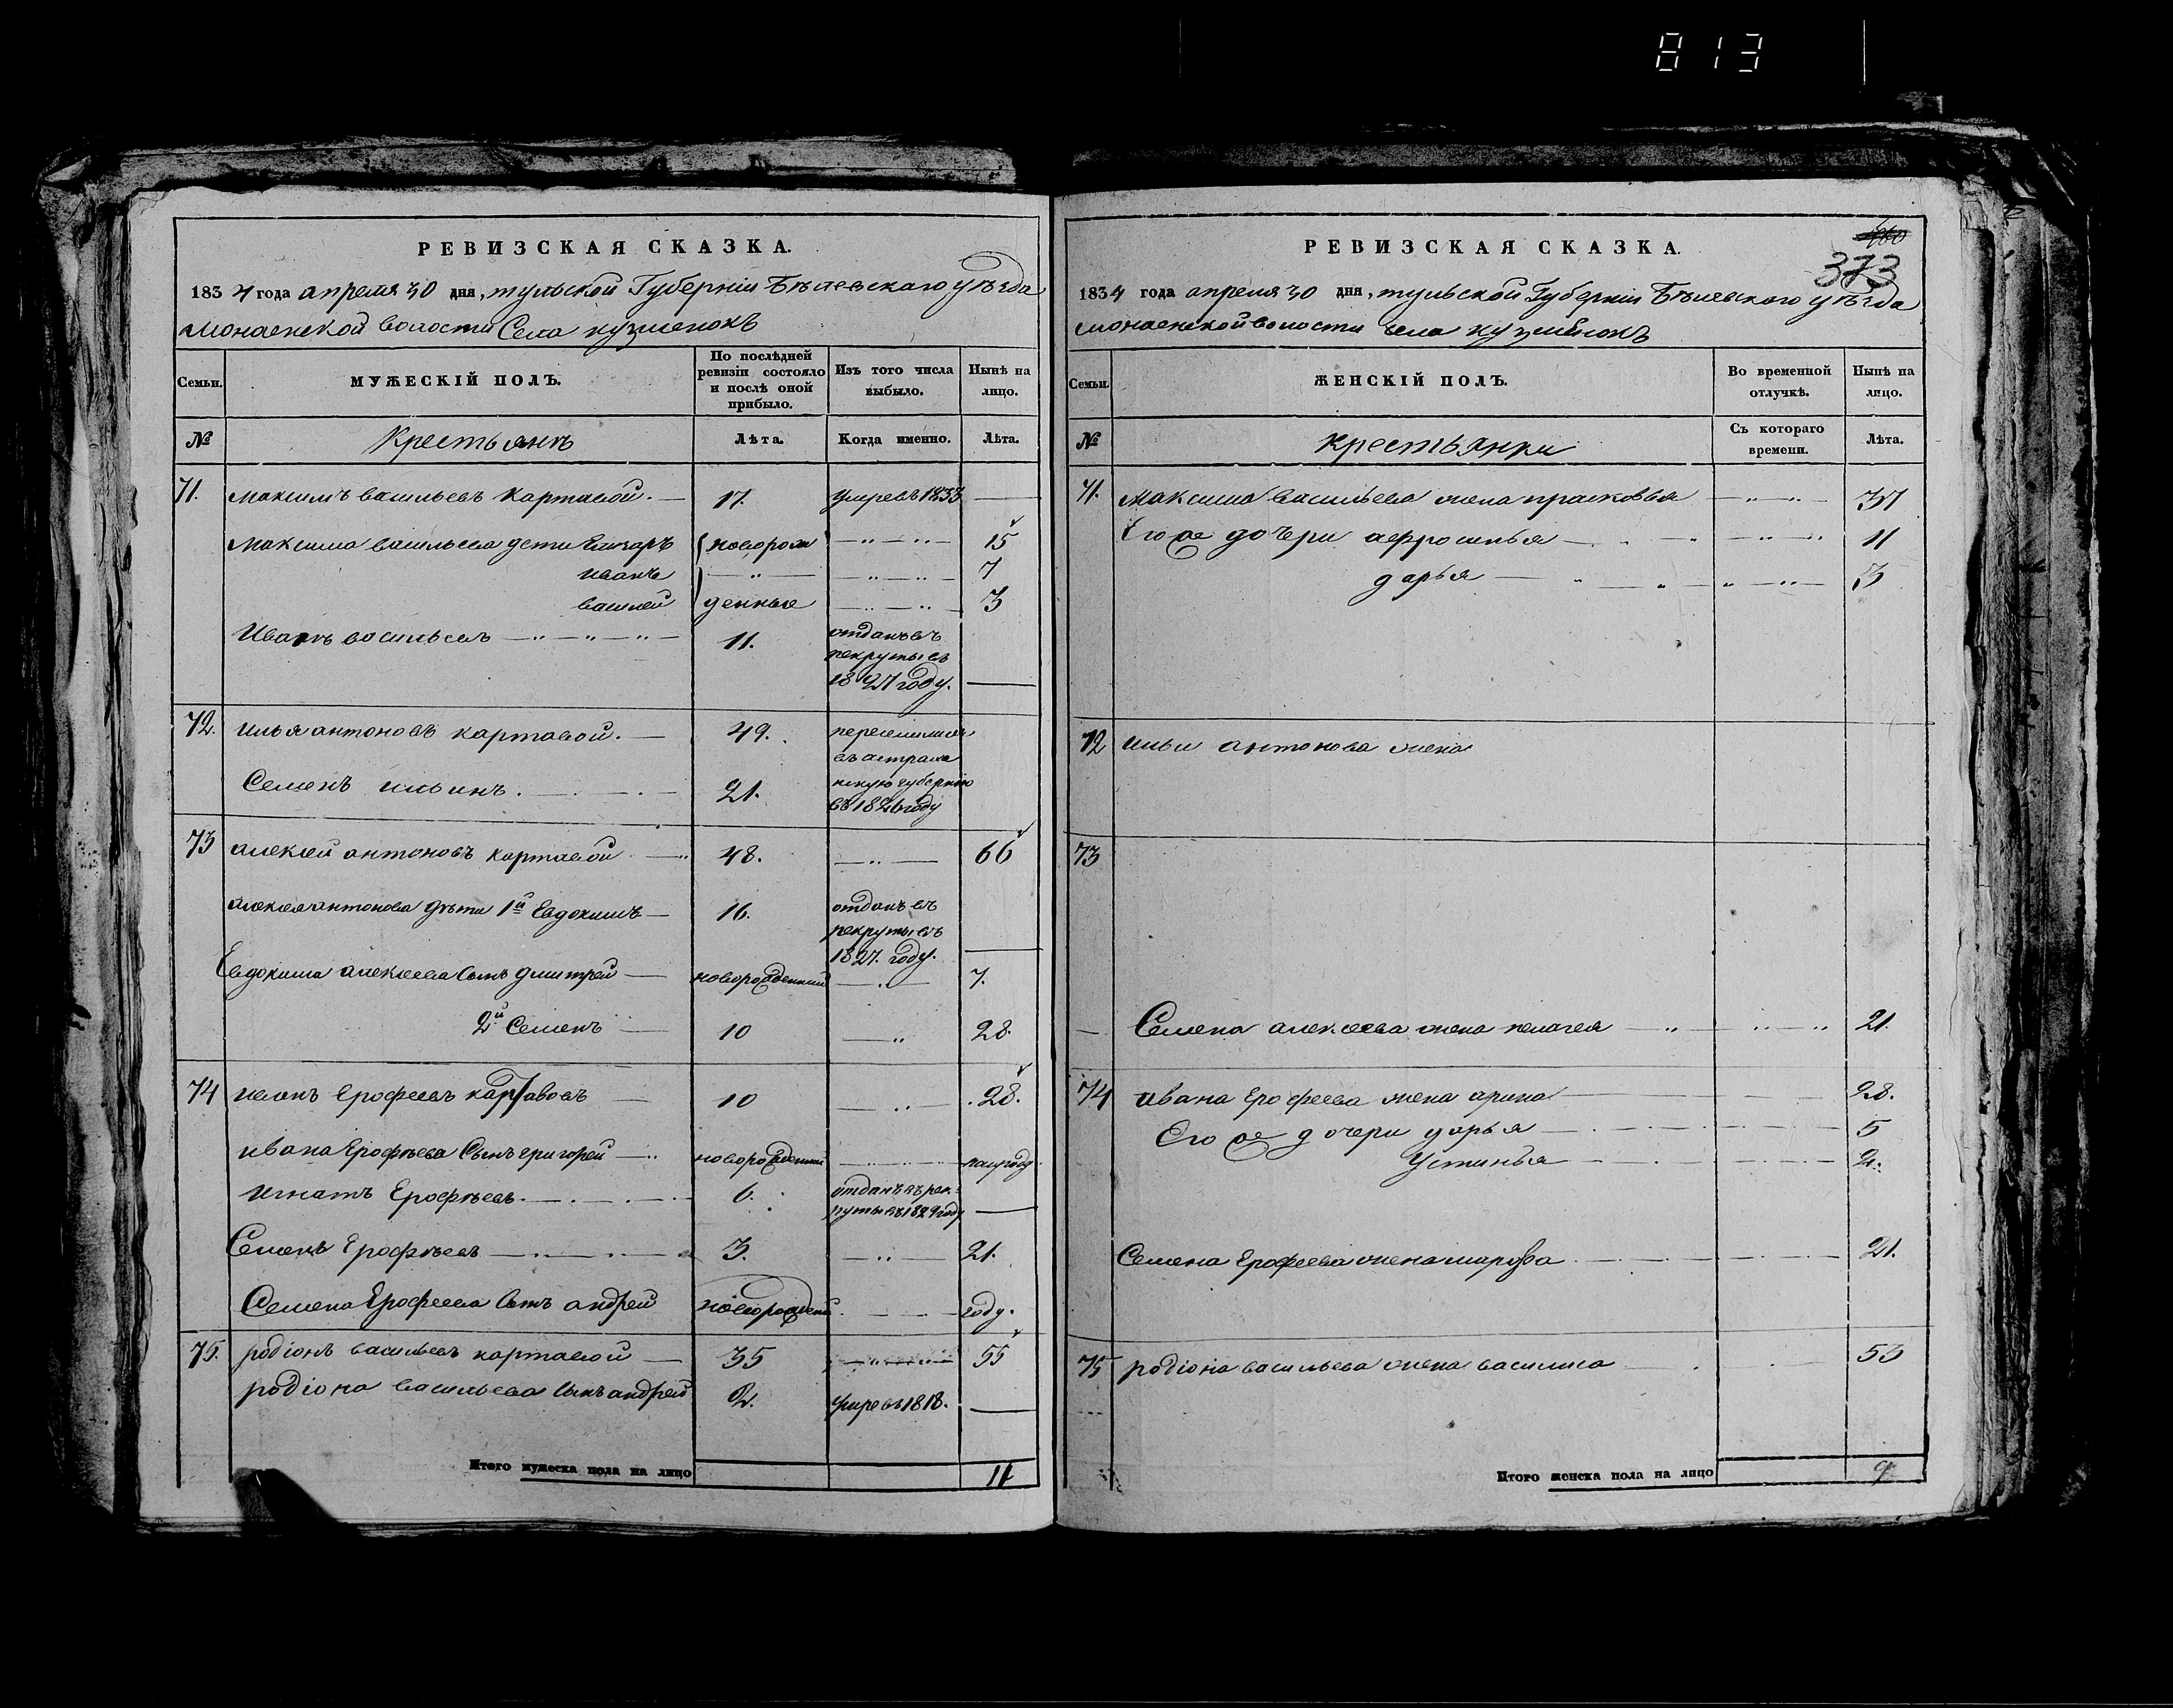 813
РЕВИЗСКАЯ СКАЗКА.
1834 года апреля 30 дня, тульской Губерніи Бѣлевскаго уѣзда
Монаенской волости Села кузменокъ
Семьи.
МУЖЕСКІЙ ПОЛЪ.
По послѣдней ревизіи состояло и послѣ оной прибыло.
Изъ того числа выбыло.
Нынѣ на лицо.
№
Крестьянъ
Лѣта.
Когда именно.
Лѣта.
71. максимъ васильевъ картавой. — 17. умре въ 1833 —
максима васильева дети елизаръ новорож — " — " — 15
иванъ — " — — " — " — 7
василей денные — " — " — 3
Иванъ васильевъ — " — " — " — 11. отданъ въ
рекруты въ
1827 году. —
72. илья антоновъ картавой. — 49. переселились
въ астрахан
Семенъ ильинъ. 21. нскую губернію
въ 1826 году
73 алексей антоновъ картавой — 48. — " — 66
алексея антонова дѣти 1й Евдокимъ — 16. отданъ въ
рекруты въ
1827. году. —
Евдокима алексеева сынъ дмитрей — новорожденный — . — 7.
2й Семенъ — 10 — " 28.
74 иванъ Ерофеевъ картавовъ — 10 — " — 28.
ивана Ерофѣева Сынъ григорей — новорожденный — полгоду
Игнатъ Ерофѣевъ 6. отданъ въ рек-
руты въ 1829 году —
Семенъ Ерофѣевъ — " — " — 3. — " — 21.
Семена Ерофеева сынъ андрей новорожден — году.
75. родіонъ васильевъ картавой — 35 — " — 55
родіона васильева сынъ андрей 2. умре въ 1818. —
Итого мужеска пола на лицо 11
373
РЕВИЗСКАЯ СКАЗКА.
1834 года апреля 30 дня, тульской Губерніи Бѣлевскаго уѣзда
монаенской волости села кузменокъ
Семьи.
ЖЕНСКІЙ ПОЛЪ.
Во временной отлучкѣ.
Нынѣ на лицо.
№
крестьянки
Съ котораго времени.
Лѣта.
71. максима васильева жена прасковья — " — " — 37
Его же дочери афросинья — " — " — 11
дарья — " — " — 3
72 ильи антонова жена
73
— Семена алексеева жена пелагея — " — " — " 21.
74 ивана Ерофеева жена арина — 28.
Его же дочери дарья — 5
Устинья — 2.
Семена Ерофеева жена марфа — 21.
75 родіона васильева жена василиса 53
Итого женска пола на лицо 9